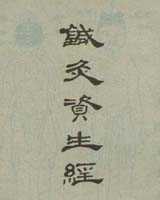 鍼灸資生經